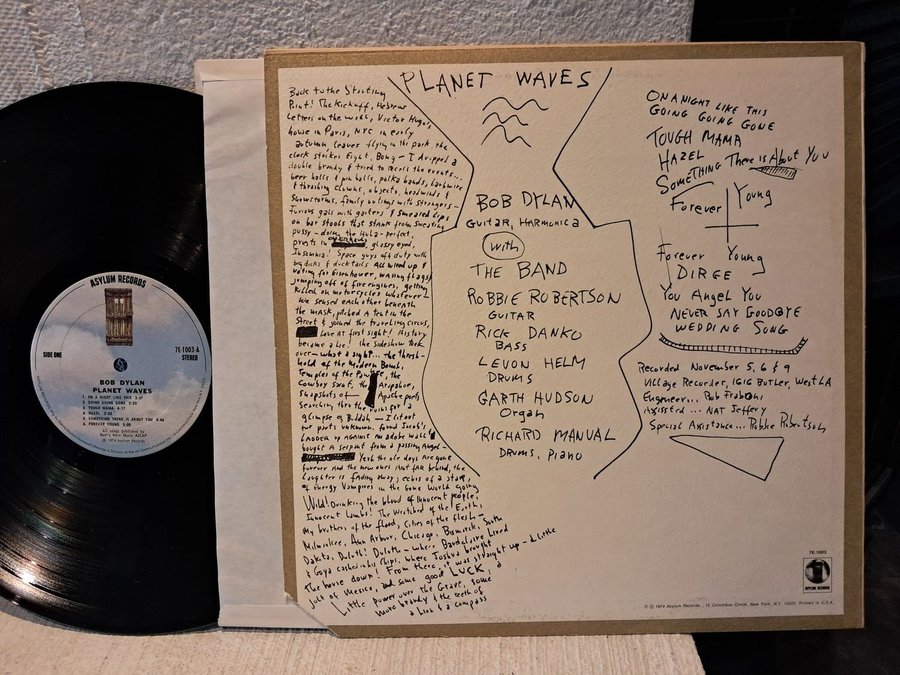 ASYLUM RECORDS
SIDE ONE
7E-1003-A
STEREO
BOB DYLAN
PLANET WAVES
1. ON A NIGHT LIKE THIS 2:57
2. GOING GOING GONE 3:25
3. TOUGH MAMA 4:17
4. HAZEL 2:50
5. SOMETHING THERE IS ABOUT YOU 4:46
6. FOREVER YOUNG
Back to the Starting
Point! The Kickoff, Hebrew
Letters on the wall, Victor Hugo's
house in Paris, NYC in early
autumn, leaves flying in the park, the
clock strikes Eight, Bong - I dropped a
double brandy & tried to recall the events...
beer halls & pin balls, polka bands, barbwire
& thrashing Clowns, objects, headwinds &
snowstorms, family outings with strangers -
Furious gals with garters & smeared Lips
on bar stools that stank from sweating
pussy - doing the Hula - perfect,
priests in glassy eyed,
Insomnia! Space guys off duty with
big dicks & ducktails all wired up &
voting for Eisenhower, waving flags &
jumping off of fire engines, getting
killed on motorcycles whatever -
We sensed each other beneath
the mask, pitched a tent in the
Street & joined the traveling circus,
Love at first sight! History
became a lie! the sideshow took
over - what a sight... the thresh-
hold of the Modern Bomb,
Temples of the the
Cowboy Saint, the Arapahoe,
snapshots of Apache poets
Searching thru the ruins for a
glimpse of Buddah - I lit out
for parts unknown, found Jacob's
Ladder up against an adobe wall &
bought a serpent from a passing Angel -
Yeah the ole days Are gone
forever And the new ones Aint far behind, the
Laughter is fading away, echos of a star,
of Energy Vampires in the Gone World going
Wild! Drinking the blood of innocent people,
Innocent Lambs! The Wretched of the Earth,
My brothers of the flood, Cities of the flesh -
Milwaukee, Ann Arbor, Chicago, Bismarck, South
Dakota, Duluth! Duluth - where Baudelaire Lived
& Goya cashed in his Chips, where Joshua brought
The house down! From there, it was straight up - a Little
jolt of Mexico, and some good LUCK, a
Little power over the Grave, some
more brandy & the teeth of
a Lion & a compass
PLANET WAVES
BOB DYLAN
GUITAR, HARMONICA
With
THE BAND
ROBBIE ROBERTSON
GUITAR
RICK DANKO
BASS
LEVON HELM
DRUMS
GARTH HUDSON
Organ
RICHARD MANUAL
DRUMS, PIANO
ON A NIGHT LIKE THIS
GOING GOING GONE
TOUGH MAMA
HAZEL
SOMETHING There is About YOU
Forever Young
Forever Young
DIRGE
You Angel You
NEVER SAY GOODBYE
WEDDING SONG
Recorded November 5, 6 & 9
Village Recorder, 1616 Butler, West LA
Engeneer... Rob Fraboni
Assisted... NAT Jeffery
Special Assistance... Robbie Robertson,
7E-1003
© Ⓟ 1974 Asylum Records, 15 Columbus Circle, New York, N.Y. 10023 Printed in U.S.A.